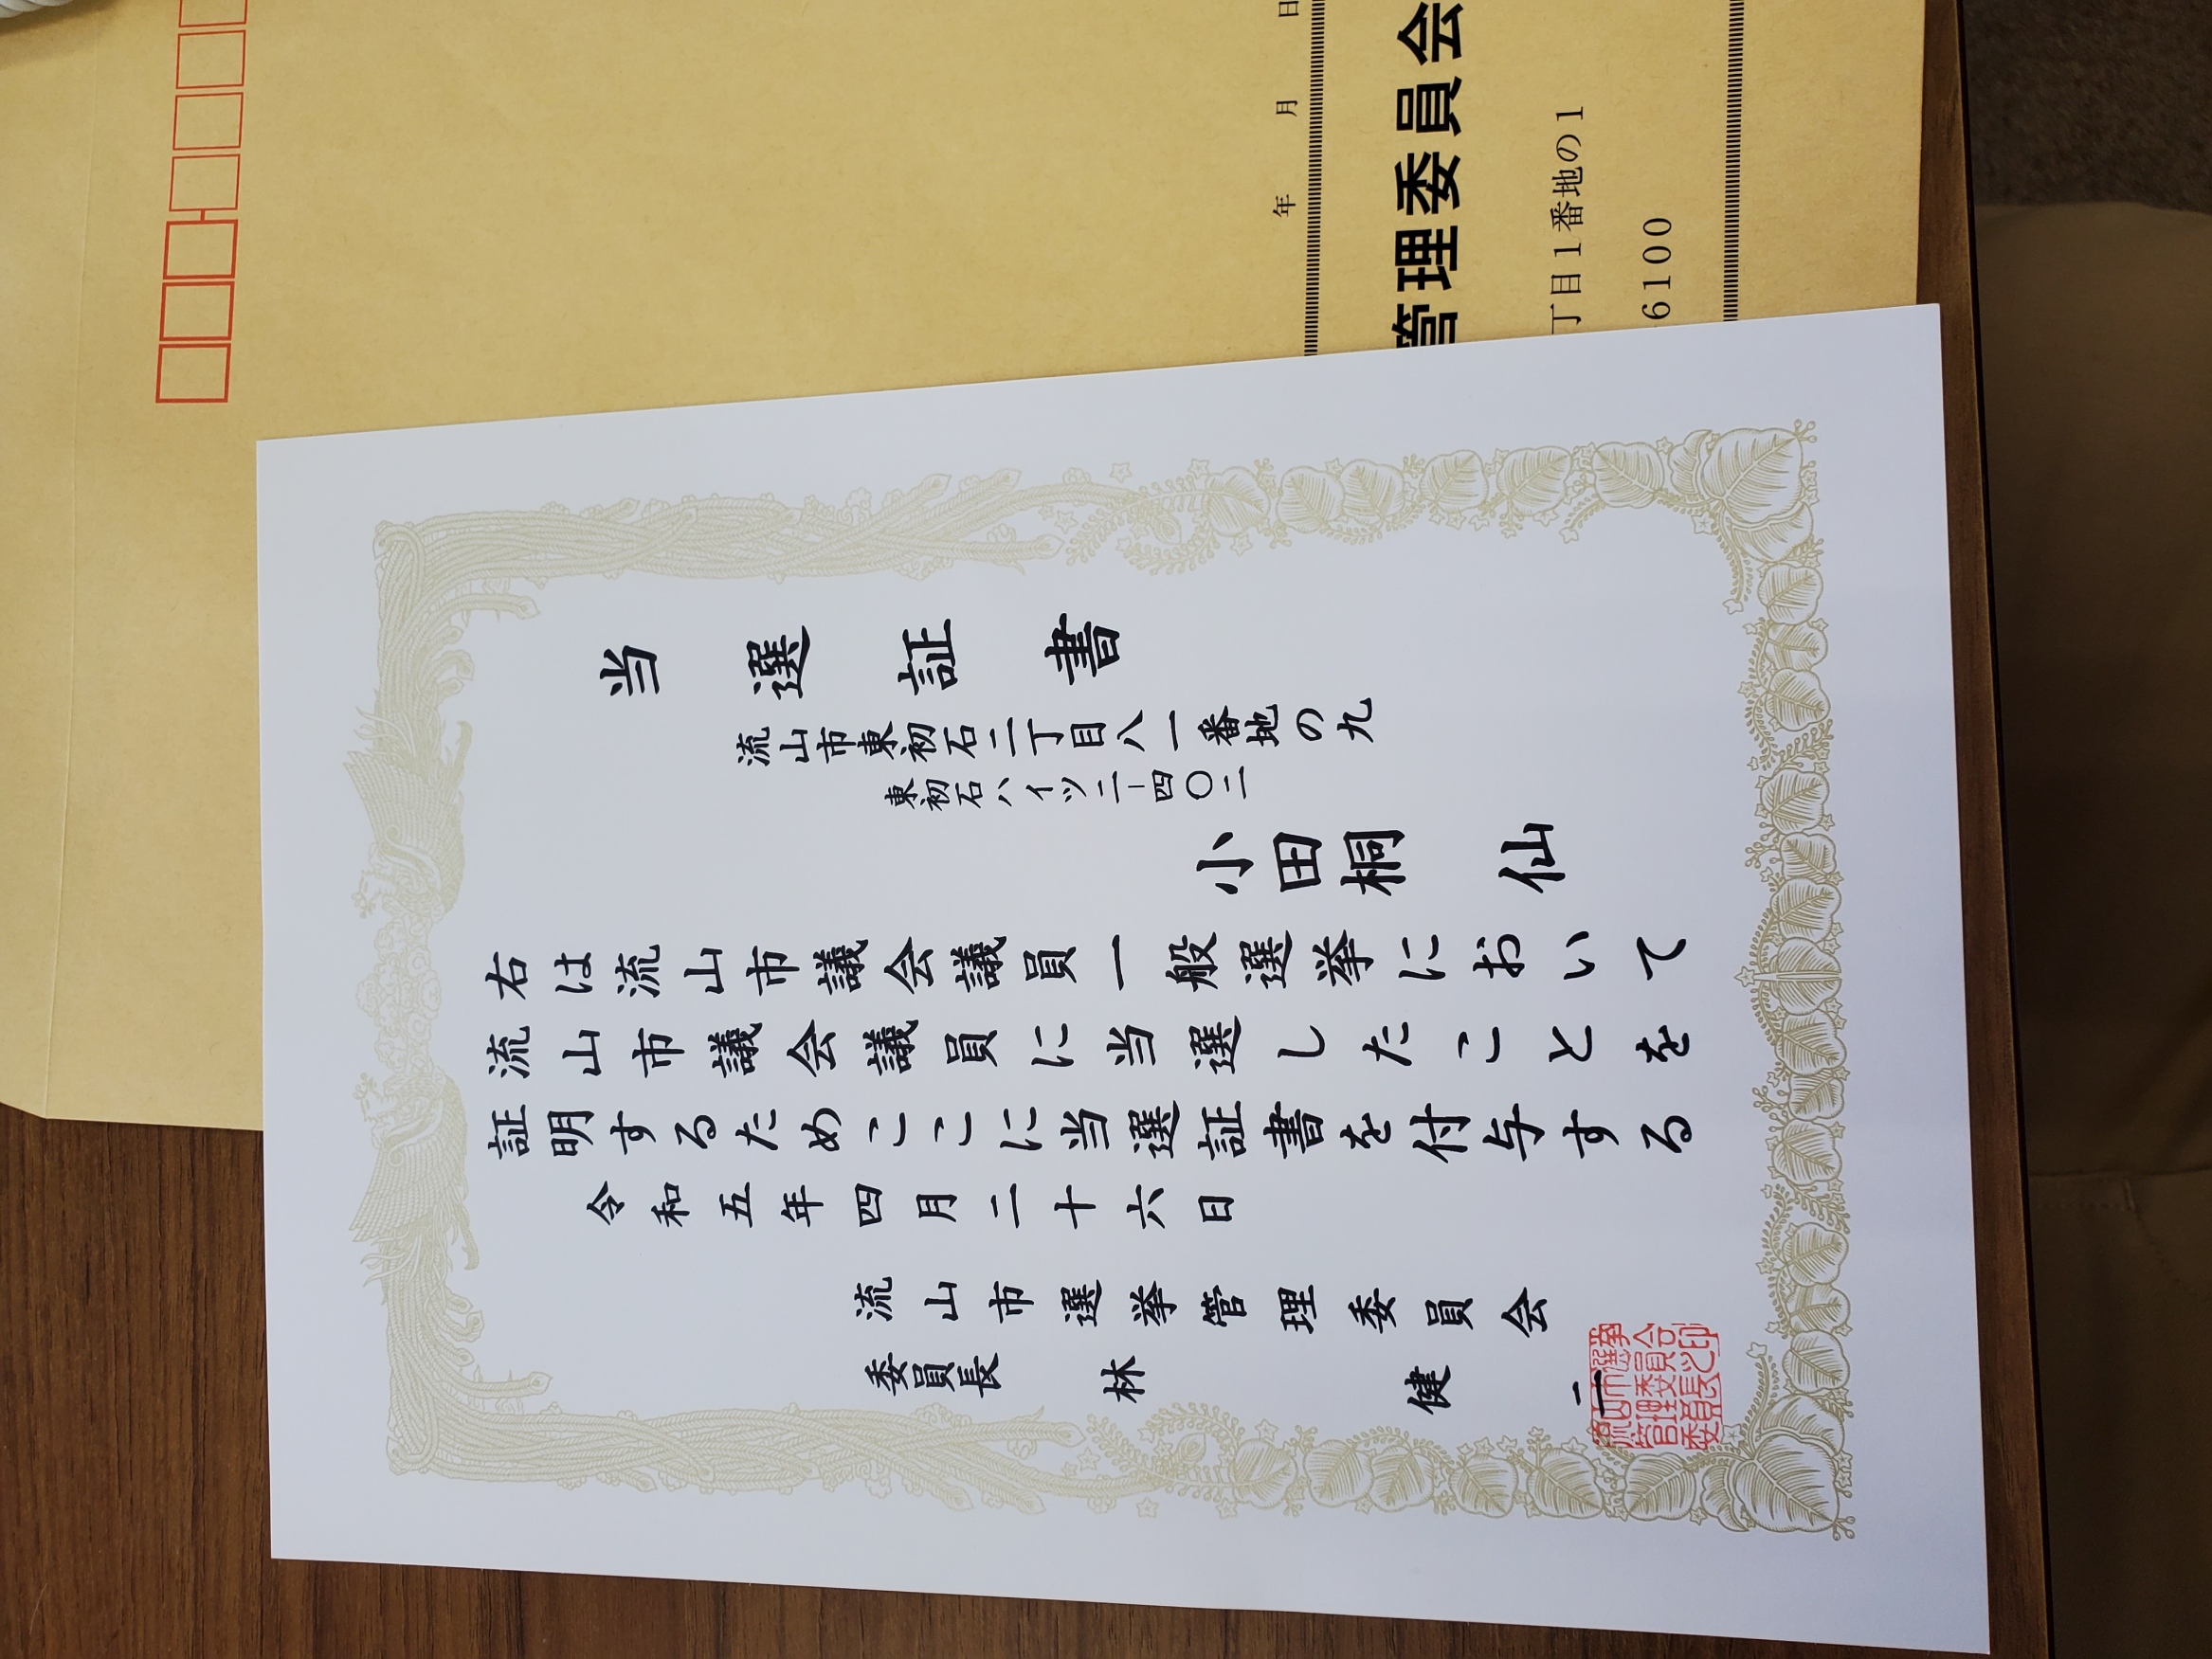 当選証書
流山市東初石二丁目八一番地の九
東初石ハイツ二-四〇二
小田桐 仙
右は流山市議会議員一般選挙において
流山市議会議員に当選したことを
証明するためここに当選証書を付与する
令和五年四月二十六日
流山市選挙管理委員会
委員長 林 健二
流山市選挙
管理委員会
委員長之印
年 月 日
管理委員会
丁目1番地の1
6100